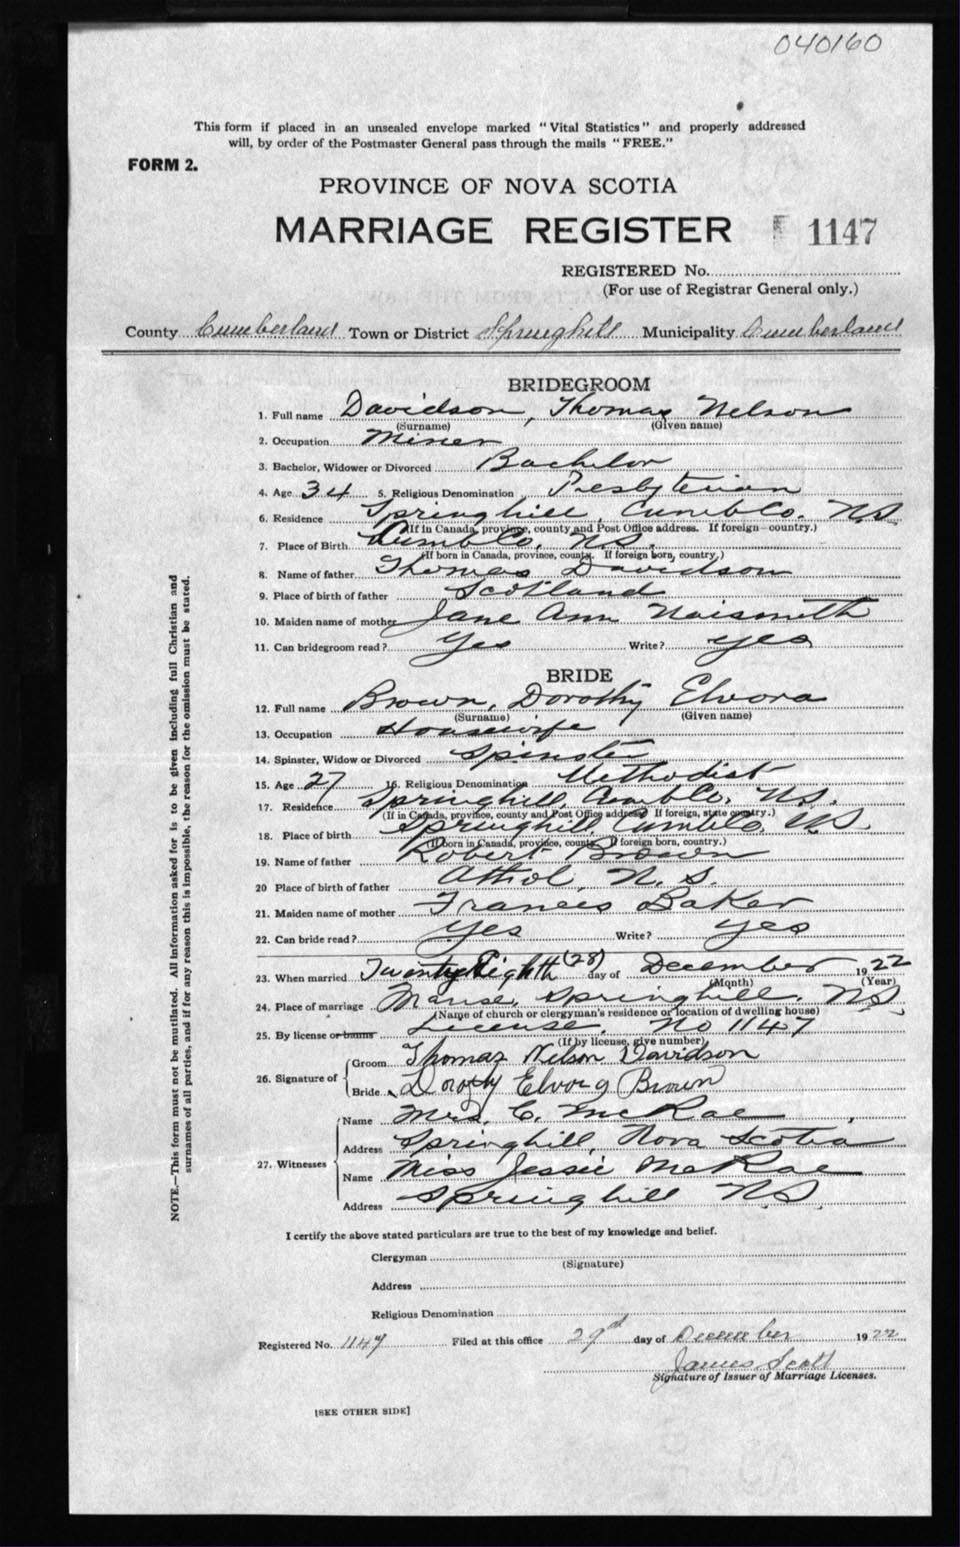 040160
This form if placed in an unsealed envelope marked "Vital Statistics" and properly addressed
will, by order of the Postmaster General pass through the mails "FREE."
FORM 2.
PROVINCE OF NOVA SCOTIA
MARRIAGE REGISTER 1147
REGISTERED No.
(For use of Registrar General only.)
County Cumberland Town or District Springhill Municipality Cumberland
BRIDEGROOM
1. Full name Davidson, Thomas Nelson
(Surname) (Given name)
2. Occupation Miner
3. Bachelor, Widower or Divorced Bachelor
4. Age 34 5. Religious Denomination Presbyterian
6. Residence Springhill, Cumb Co. N.S.
(If in Canada, province, county and Post Office address. If foreign—country.)
7. Place of Birth Cumb Co. N.S.
(If born in Canada, province, county. If foreign born, country.)
8. Name of father Thomas Davidson
9. Place of birth of father Scotland
10. Maiden name of mother Jane Ann Naismith
11. Can bridegroom read? Yes Write? yes
BRIDE
12. Full name Brown, Dorothy Elvora
(Surname) (Given name)
13. Occupation Housewife
14. Spinster, Widow or Divorced Spinster
15. Age 27 16. Religious Denomination Methodist
17. Residence Springhill, Cumb Co. N.S.
(If in Canada, province, county and Post Office address. If foreign, state country.)
18. Place of birth Springhill, Cumb Co. N.S.
(If born in Canada, province, county. If foreign born, country.)
19. Name of father Robert Brown
20 Place of birth of father Athol, N.S.
21. Maiden name of mother Frances Baker
22. Can bride read? yes Write? yes
23. When married Twenty Eighth (28) day of December 1922
(Month) (Year)
24. Place of marriage Manse, Springhill, N.S.
(Name of church or clergyman's residence or location of dwelling house)
25. By license or banns License. No 1147
(If by license, give number)
26. Signature of Groom Thomas Nelson Davidson
Bride Dorothy Elvora Brown
27. Witnesses Name Mrs. C. McRae
Address Springhill, Nova Scotia
Name Miss Jessie McRae
Address Springhill N.S.
I certify the above stated particulars are true to the best of my knowledge and belief.
Clergyman
(Signature)
Address
Religious Denomination
Registered No. 1147 Filed at this office 29th day of December 1922
James Scott
Signature of Issuer of Marriage Licenses.
[SEE OTHER SIDE]
NOTE.—This form must not be mutilated. All information asked for is to be given including full Christian and
surnames of all parties, and if for any reason this is impossible, the reason for the omission must be stated.